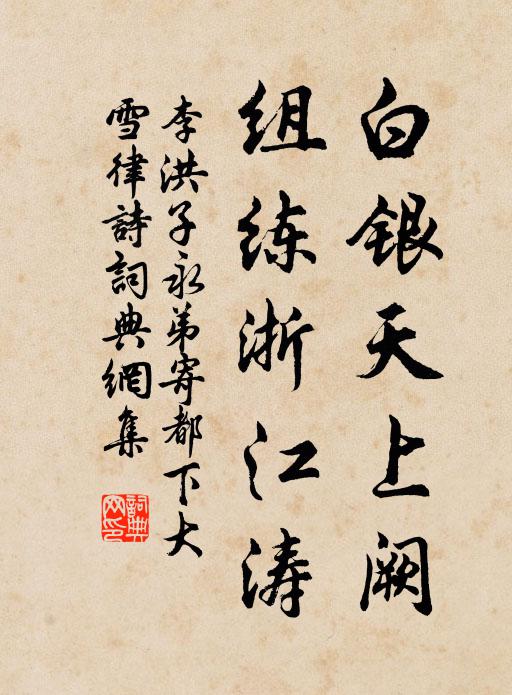 白银天上阙
组练浙江涛
李洪子永弟寄都下大
雪律詩詞典網集
詞典網印